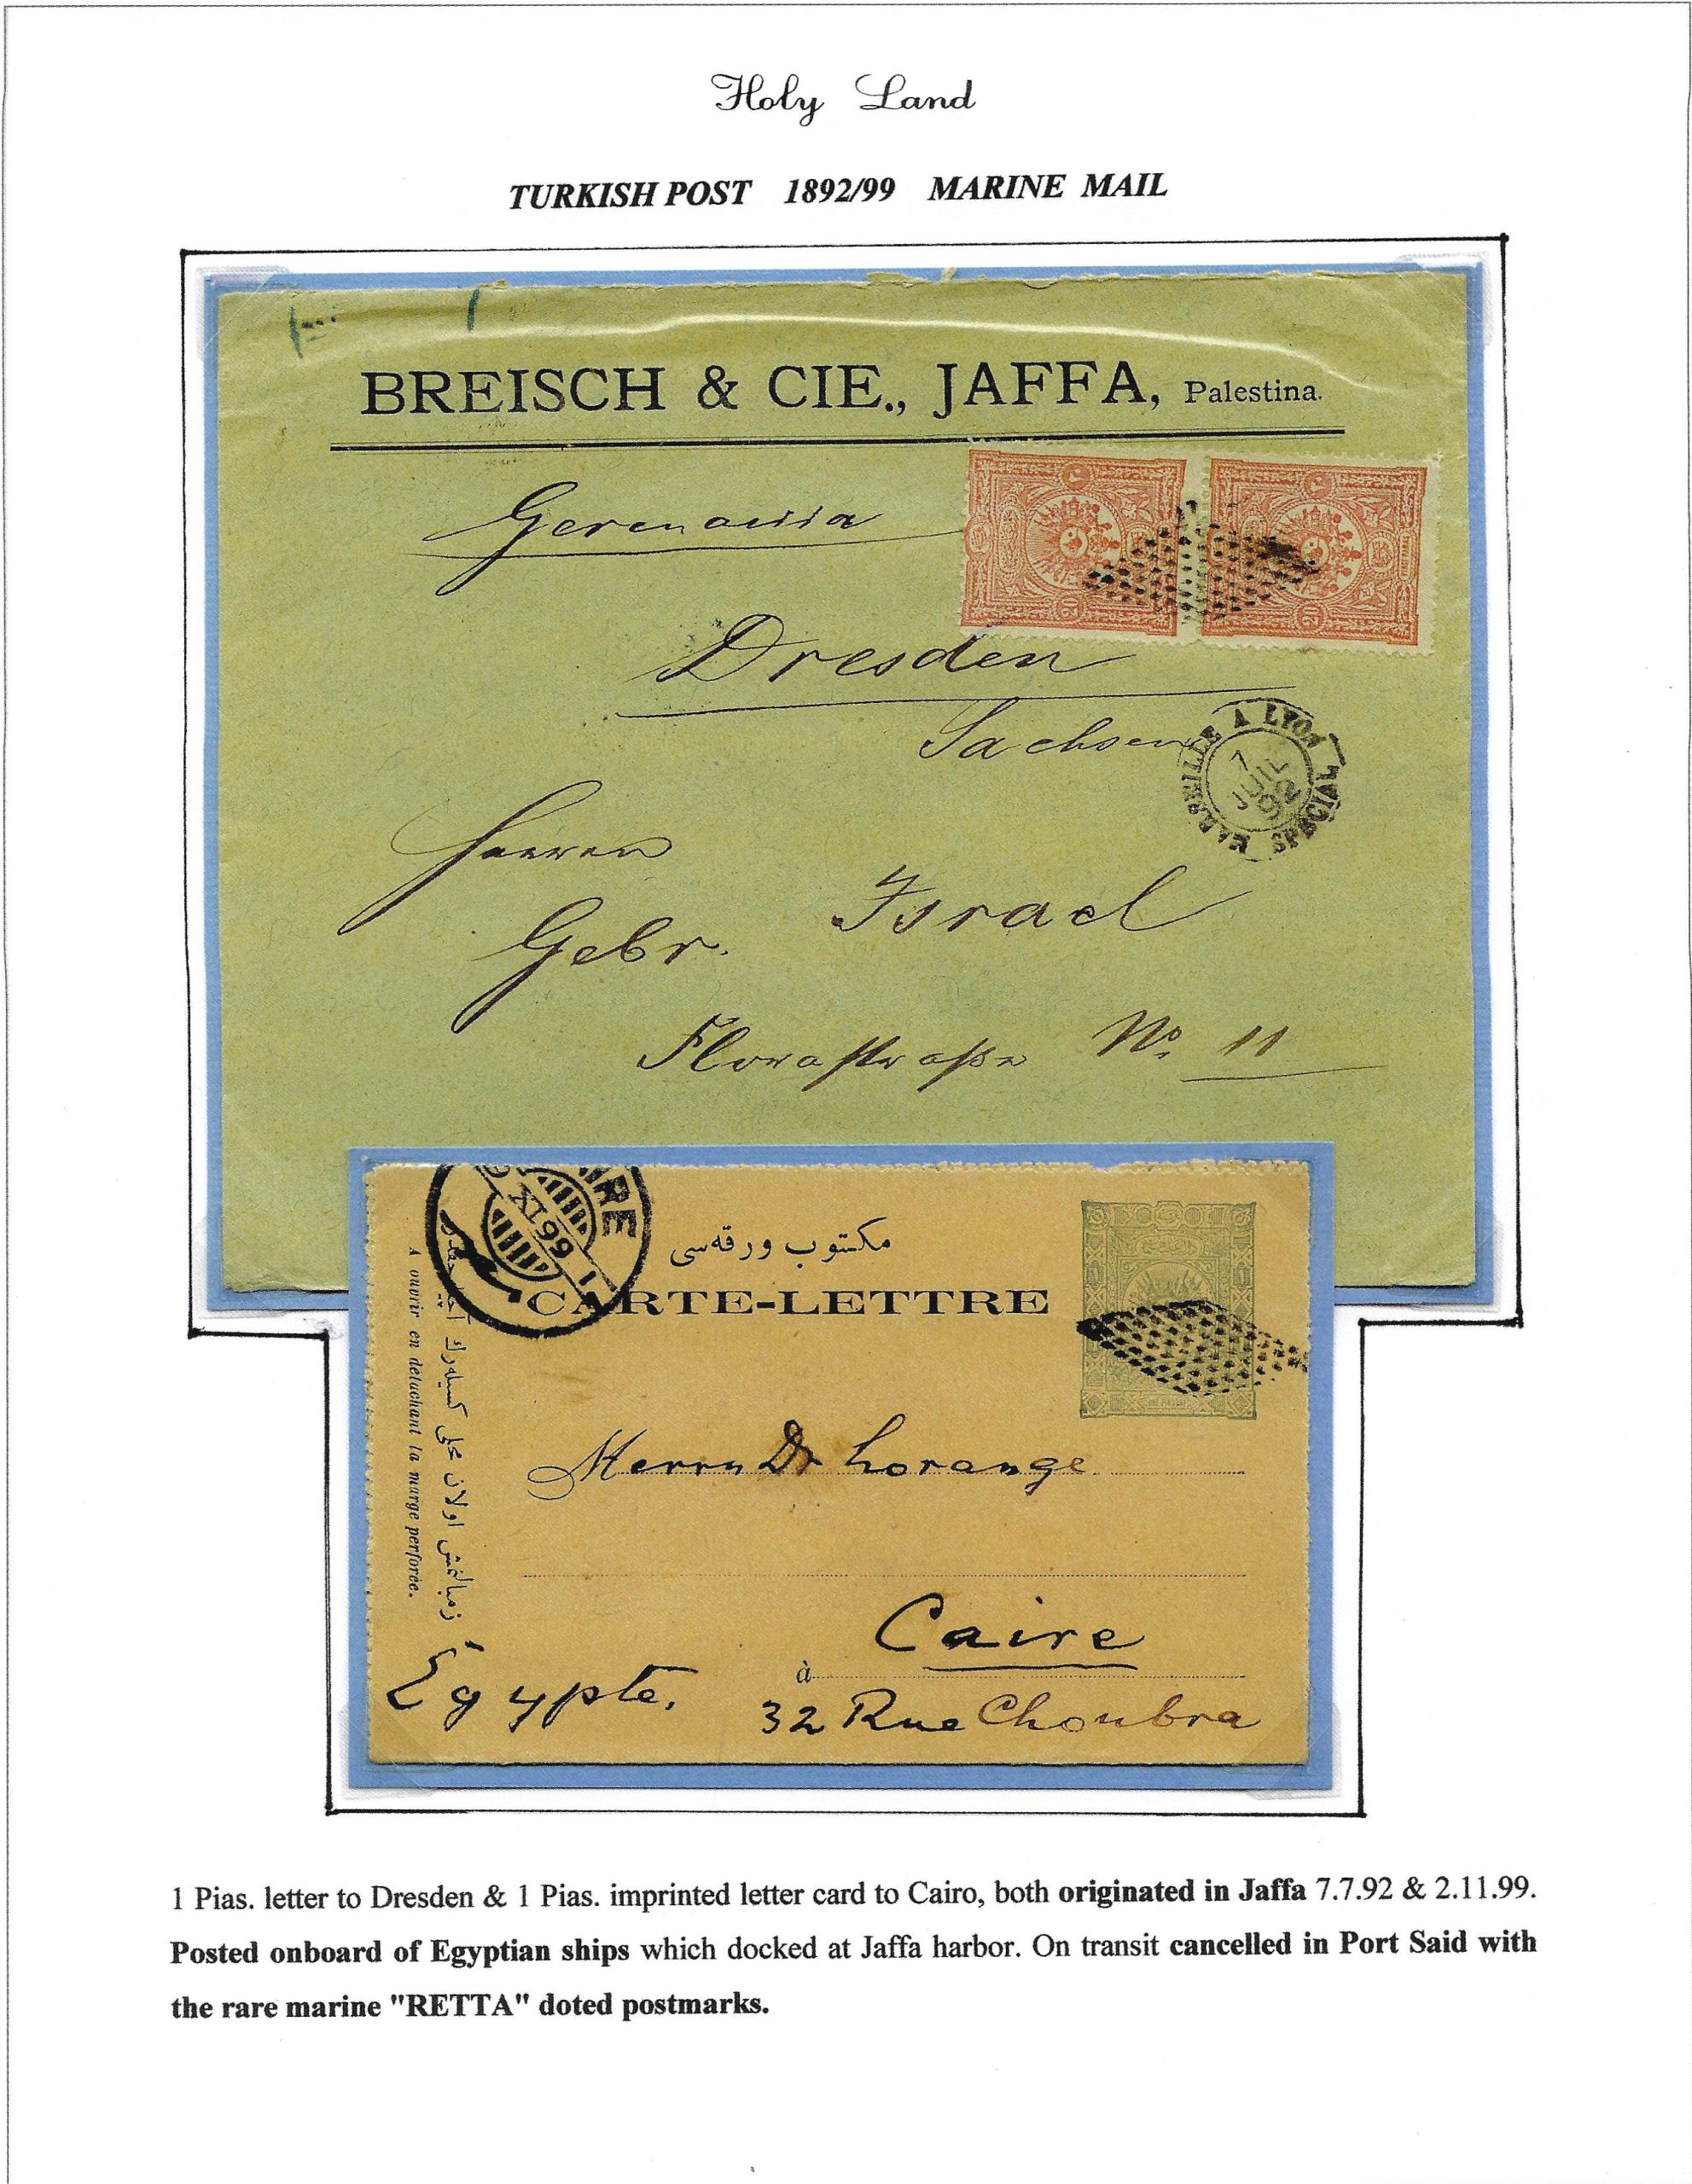 Holy Land
TURKISH POST 1892/99 MARINE MAIL
BREISCH & CIE., JAFFA, Palestina.
Germania
Dresden
Sachsen
MARSEILLE A LYON
SPECIAL
7
JUIL
92
Herren
Gebr. Israel
Florastraße No. 11
مكتوب ورقه‌سی
CARTE-LETTRE
IRE
IX 99
A ouvrir en détachant la marge perforée.
Herrn Dr Lorange
Caire
à
Égypte. 32 Rue Choubra
1 Pias. letter to Dresden & 1 Pias. imprinted letter card to Cairo, both originated in Jaffa 7.7.92 & 2.11.99.
Posted onboard of Egyptian ships which docked at Jaffa harbor. On transit cancelled in Port Said with
the rare marine "RETTA" doted postmarks.